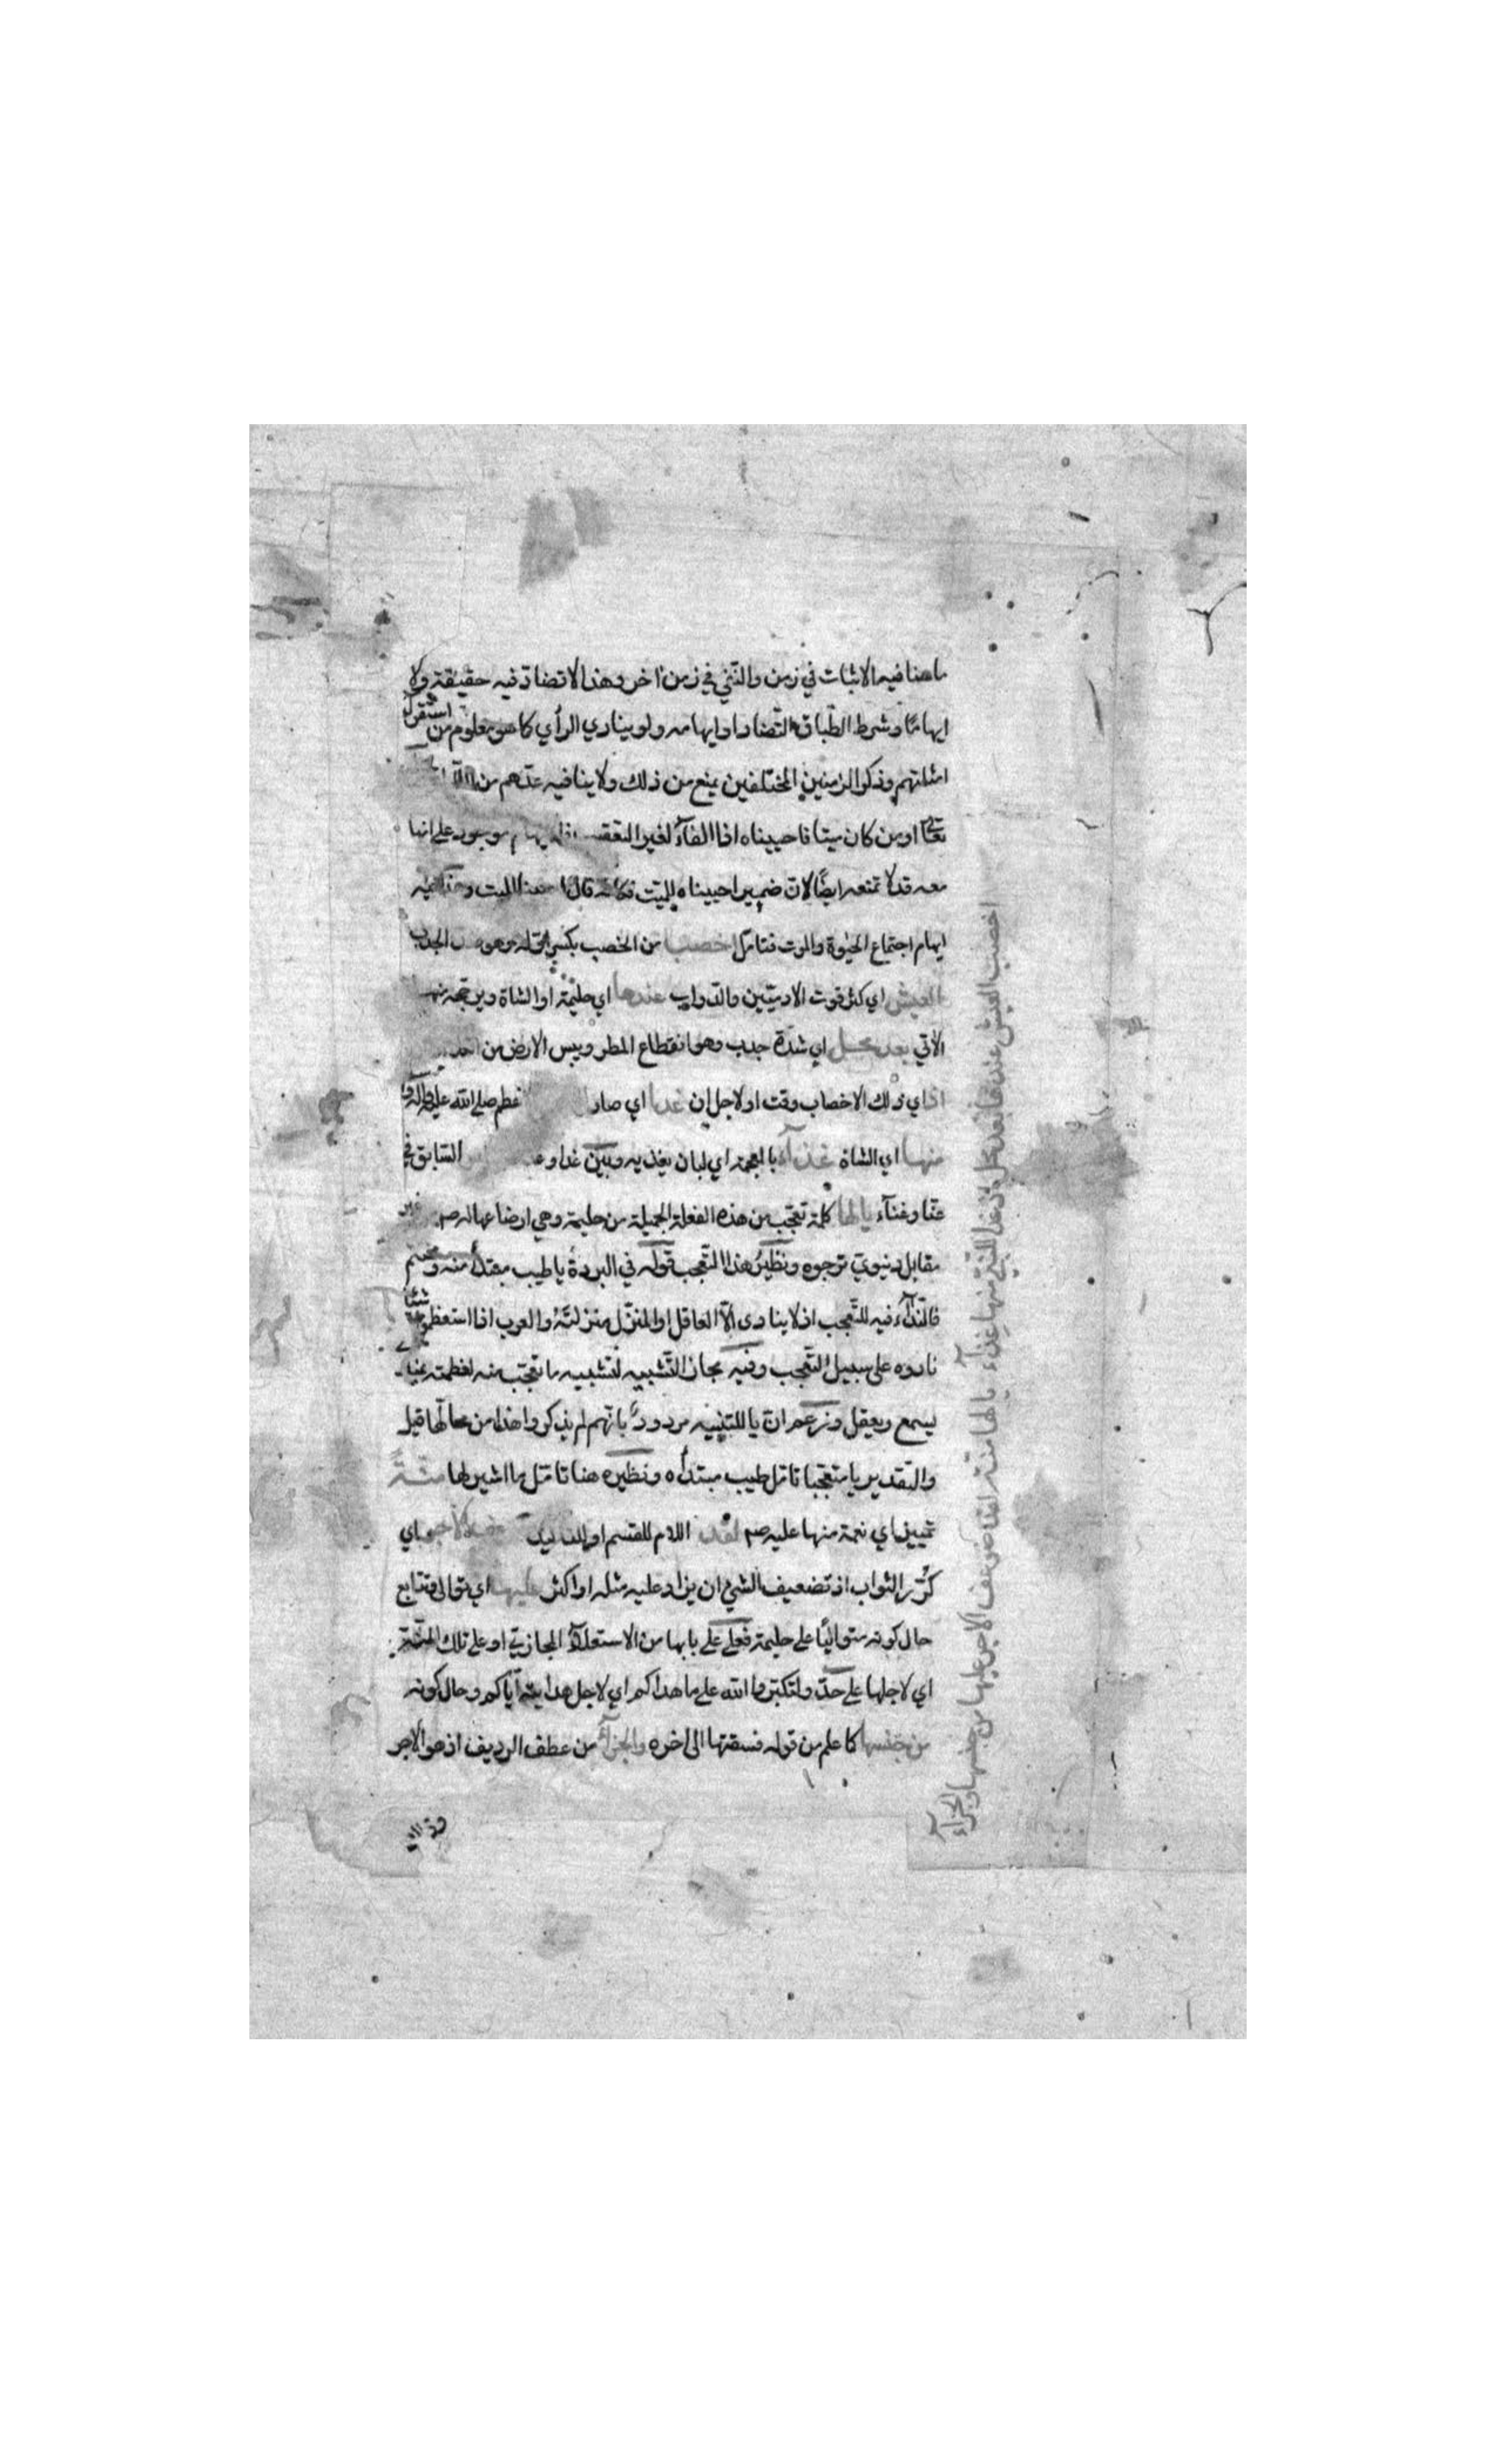 ما هنا فيه الاثبات في زمن والنفي في زمن اخر وهذا لا تضاد فيه حقيقة ولا
ايهامًا وشرط الطباق التضاد او ايهامه ولو ببادي الرأي كما هو معلوم من استقراء
امثلتهم وذكر الزمنين المختلفين يمنع من ذلك ولا ينافيه عدهم من
تعالى اومن كان ميتا فاحييناه اذ الفآء لغير التعقيب على انها
معه قد لا تمنعه ايضًا لان ضمير احييناه للميت فكانه قال الميت
ايهام اجتماع الحيٰوة والموت فتامل اخصب من الخصب بكسر اوله وهو الجدب
العيش اي كثر قوت الادميّين والدواب عندها اي حليمة او الشاة ويرجحه منها
الآتي بعد محل اي شدة جدب وهو انقطاع المطر ويبس الارض من
اذ اي ذلك الاخصاب وقت او لاجل ان غدا اي صار صلى الله عليه وآله و
منها اي الشاة غذآء بالمعجمة اي لبان يغذيه وبين غدا و السابق في
عنا وغنآء يا لها كلمة تعجب من هذه الفعلة الجميلة من حليمة وهي ارضاعها له صم غير
مقابل دنيوي ترجوه ونظيرُ هذا التعجب قوله في البردة يا طيب مبتدأ منه ومختتم
فالندآء فيه للتعجب اذ لا ينادى الّا العاقل او المنزّل منزلتهُ والعرب اذا استعظموا شيئا
نادوه على سبيل التعجب وفيه مجاز التشبيه لتشبيه ما تعجب منه لعظمته بمن
يسمع ويعقل وزعم ان يا للتنبيه مردودٌ بانهم لم يذكروا هذا من محالها قيل
والتقدير يا متعجبا تامل طيب مبتدأه ونظيره هنا تامل ما اشير لها منّةً
تمييز اي نعمة منها عليه صم لقد اللام للقسم او للتاكيد ضوعف الاجر اي
كُثر الثواب اذ تضعيف الشيء ان يزاد عليه مثله او اكثر عليها اي توالى وتتابع
حال كونه متواليًا على حليمة فعلى على بابها من الاستعلآء المجازي او على تلك المنّة
اي لاجلها على حدّ ولتكبروا الله على ما هداكم اي لاجل هدايته اياكم وحال كونه
من جنسها كما علم من قوله فسقتها الى اخره والجزآء من عطف الرديف اذ هو الاجر
اخصب العيش عندها بعد محل اذ غدا للنبي منها غذآء يا لها منة لقد ضوعف الاجر عليها من جنسها والجزآء